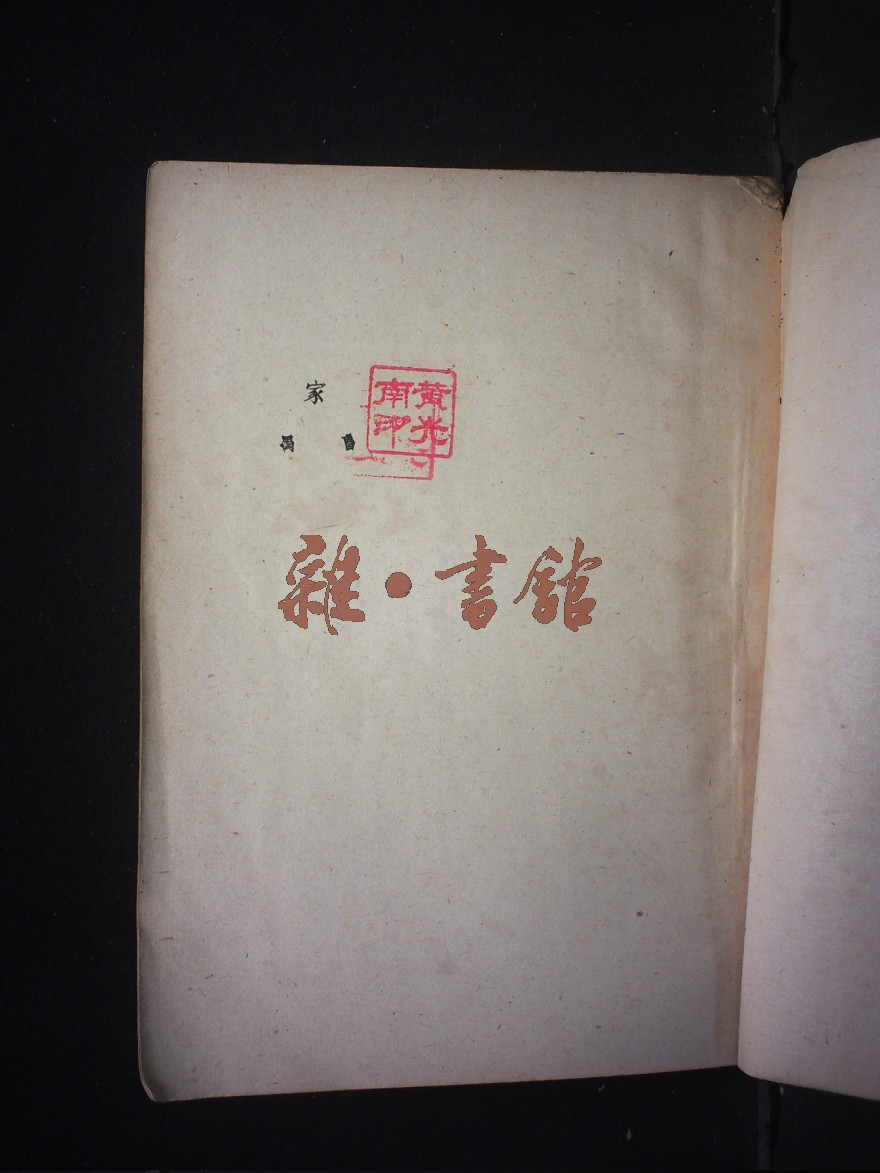 家
黄光
南印
雜·書館